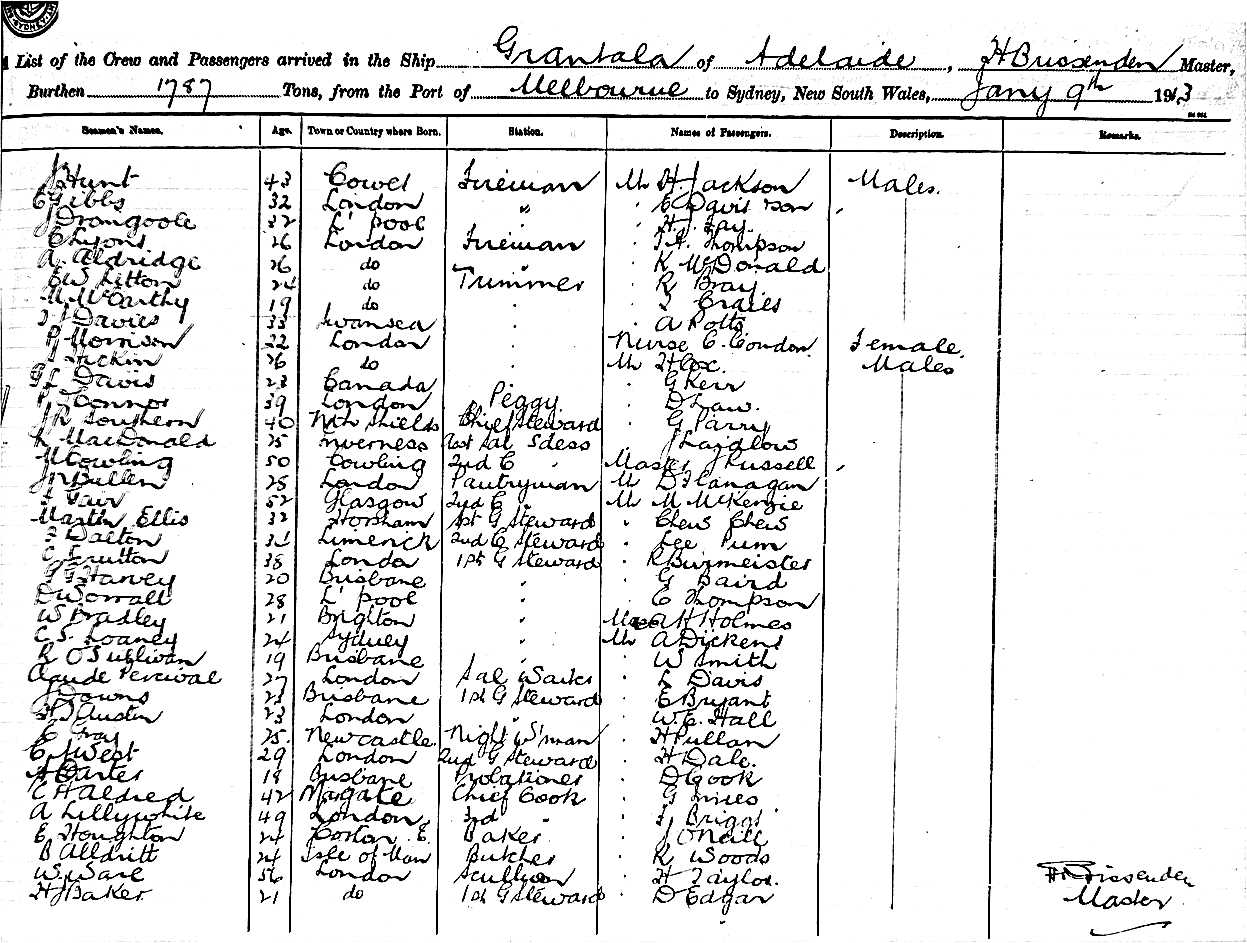 SYDNEY
List of the Crew and Passengers arrived in the Ship Grantala of Adelaide, H Brissenden Master,
Burthen 1787 Tons, from the Port of Melbourne to Sydney, New South Wales, Jany 9th 1913
Seamen's Names. Age. Town or Country where Born. Station. Names of Passengers. Description. Remarks.
J Hunt 43 Cowes Fireman Mr H. Jackson Males.
C Gibbs 32 London " " E Davidson
J Dromgoole 32 L'pool " H. J. Fay.
C Lyons 26 London Fireman " J. A. Thompson
A. Aldridge 26 do " " K McDonald
E W Litton 24 do Trimmer " R Bray
M McCarthy 19 do " "
J J Davies 33 Swansea " " A Potts
P Morrison 22 London " Nurse C. Condon. Female.
26 do " Mr H Cox. Males
Davis 23 Canada " " G Kerr
Connor 39 London Peggy " D Law.
J R Southern 40 Nth Shields Chief Steward " G Parry
K MacDonald 25 Inverness Sal S'dess " J Laidlow
M Cowling 50 Cowling 2nd C " Master J Russell
J N Bullen 28 London Pantryman Mr D Flanagan
Fair 52 Glasgow 2nd C " Mr M McKenzie
Martin Ellis 32 Horsham 1st G Steward " Chew Chews
Dalton 32 Limerick 2nd C Steward " Lee Pum
C Frutton 38 London 1st G Steward " R Burmeister
G F Harvey 20 Brisbane " " G Baird
D Worrall 28 L'pool " " E Thompson
W Bradley 21 Brighton " A H Holmes
C. S. Loaney 24 Sydney " Mr A Dickens
R O'Sullivan 19 Brisbane " " W Smith
Claude Percival 27 London Sal Waiter " L Davis
J Downs 23 Brisbane 1st G Steward " E Bryant
H J Austin 23 London " " W. E. Hall
E Gray 25 Newcastle Night W'man " H Pullan
C J West 29 London 2nd G Steward " H Dale.
A Carter 18 Brisbane Probationer " D Cook
C H Aldred 42 Margate Chief Cook " G
A Lillywhite 49 London 3rd " " J Briggs
E. Houghton 24 E. Baker " J O'Neill
B Alldritt 24 Isle of Man Butcher " R Woods
W. Ware 56 London Scullion " H Taylor.
H J Baker. 21 do 1st G Steward " D Edgar
H Brissenden
Master